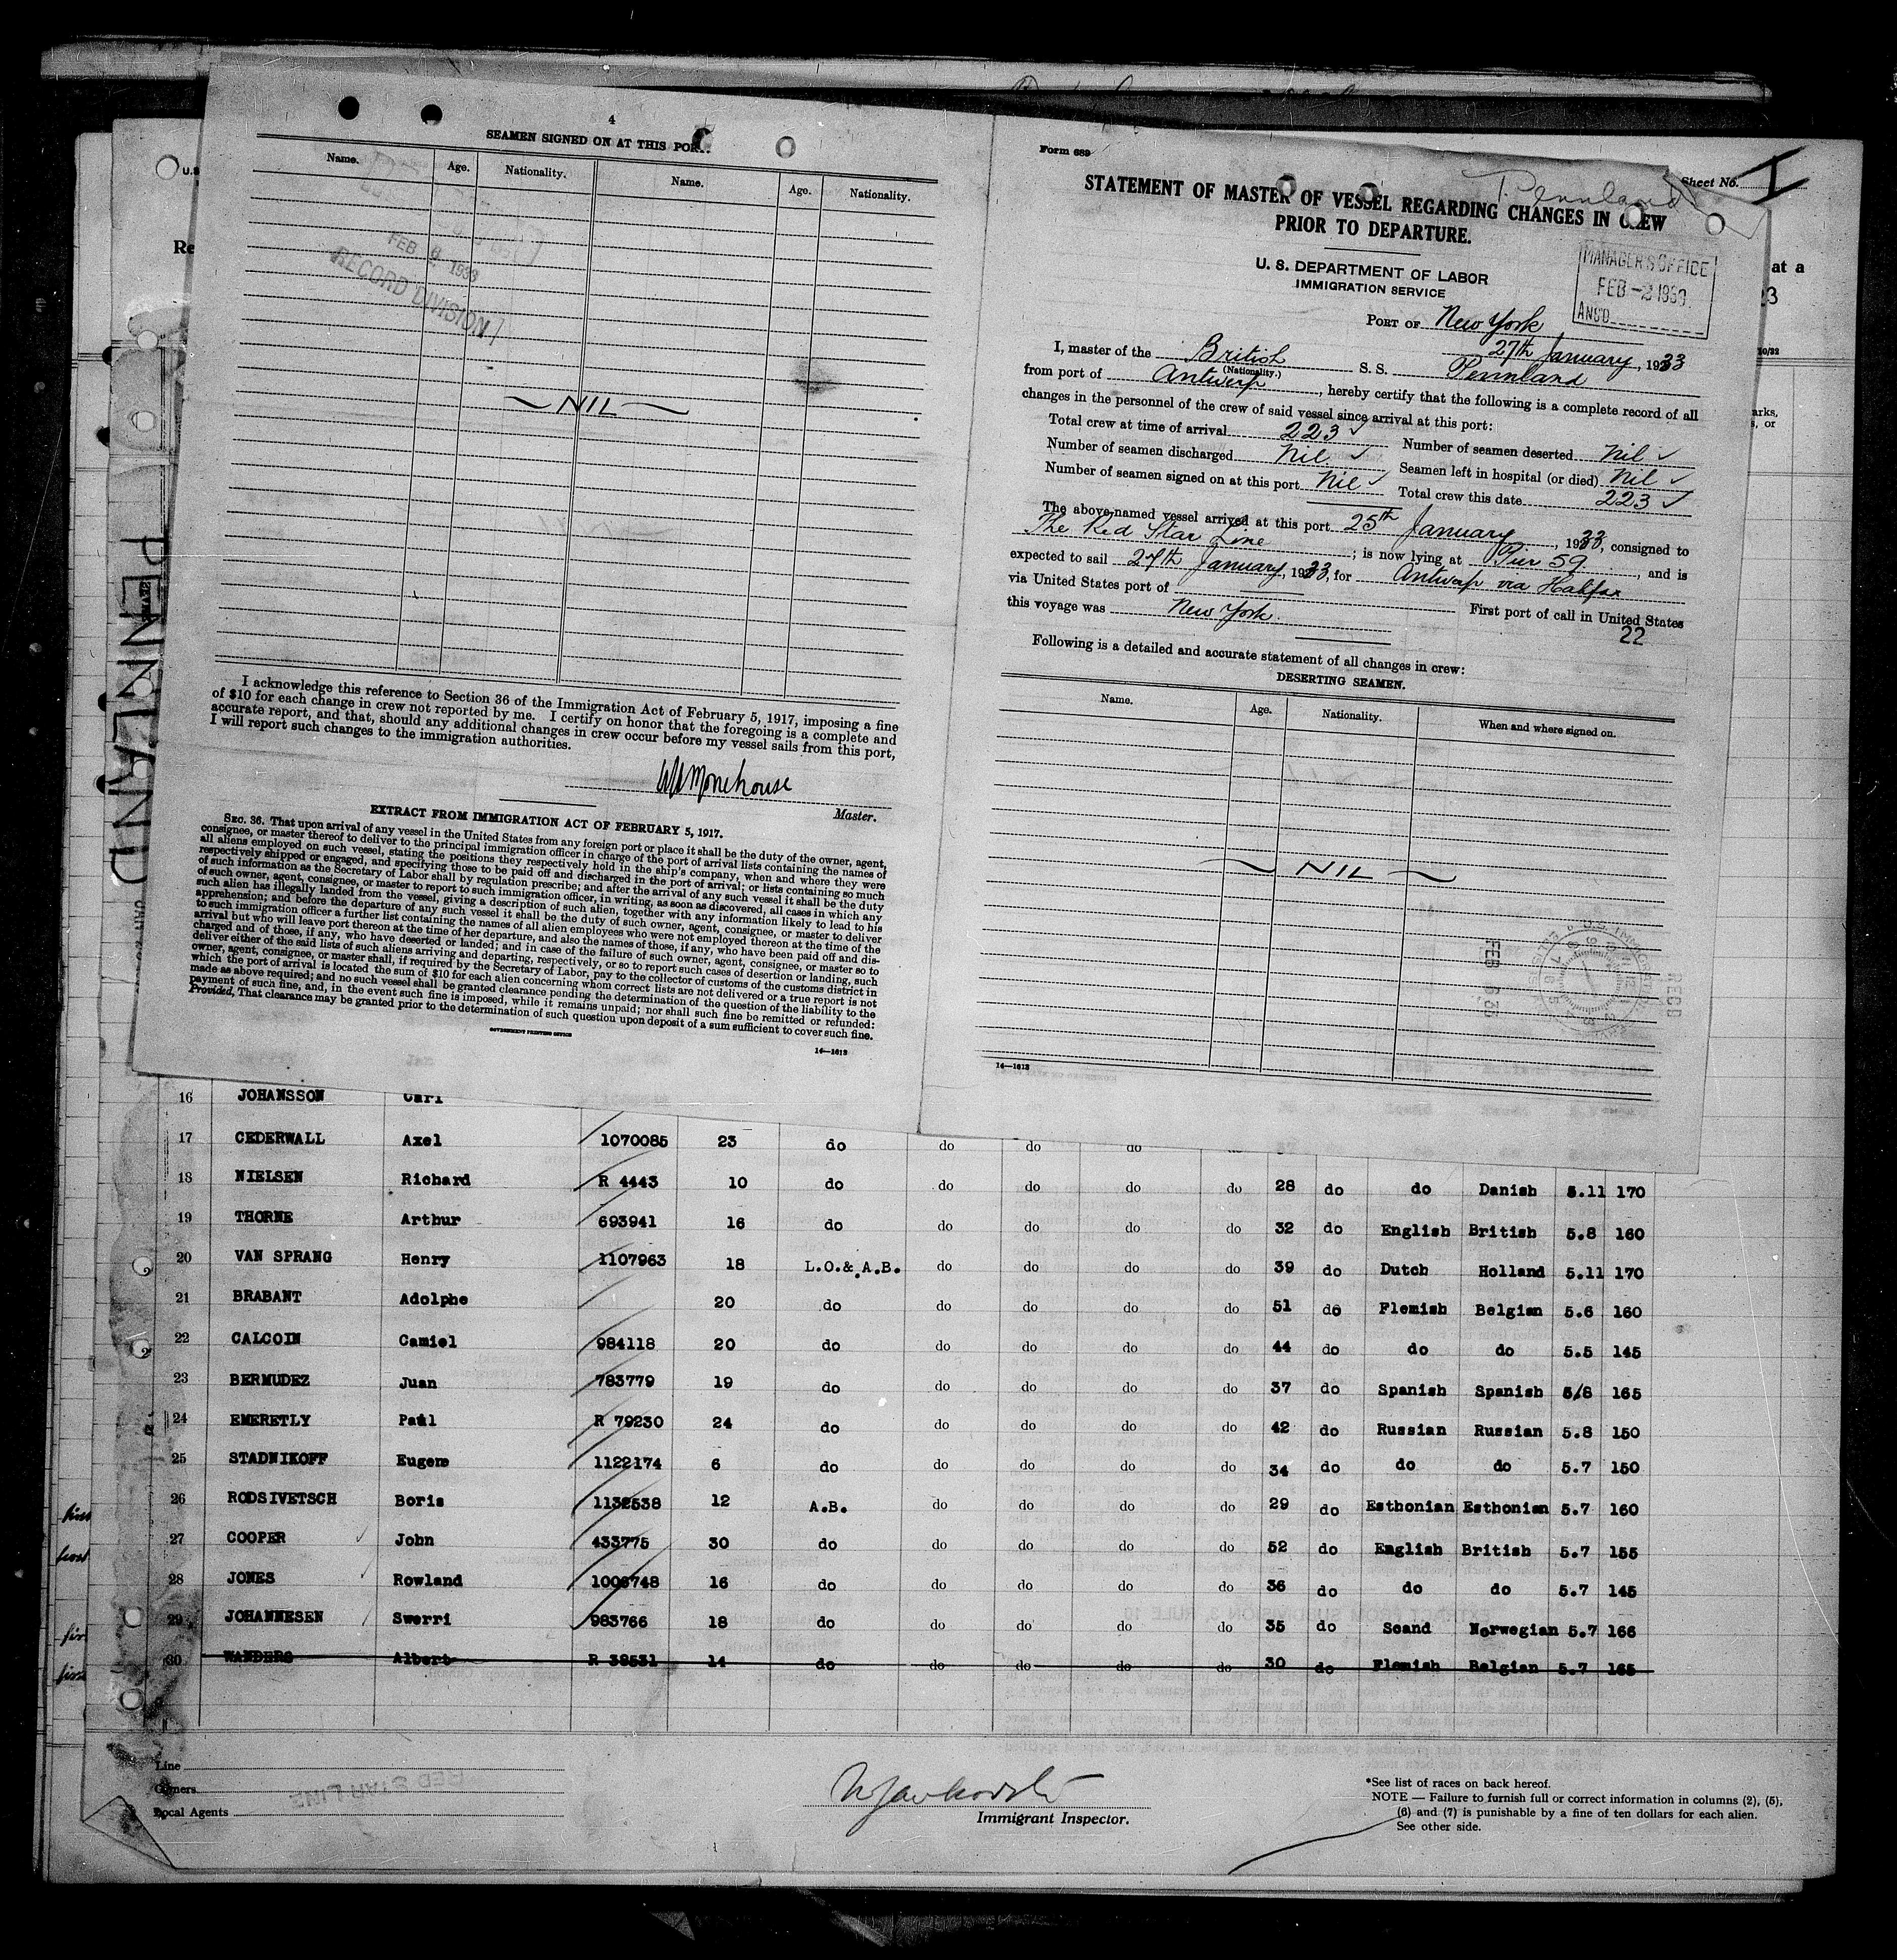 4
SEAMEN SIGNED ON AT THIS PORT.
Name. Age. Nationality. Name. Age. Nationality.
FEB 6 1933
RECORD DIVISION
NIL
I acknowledge this reference to Section 36 of the Immigration Act of February 5, 1917, imposing a fine
of $10 for each change in crew not reported by me. I certify on honor that the foregoing is a complete and
accurate report, and that, should any additional changes in crew occur before my vessel sails from this port,
I will report such changes to the immigration authorities.
Morehouse
Master.
EXTRACT FROM IMMIGRATION ACT OF FEBRUARY 5, 1917.
SEC. 36. That upon arrival of any vessel in the United States from any foreign port or place it shall be the duty of the owner, agent,
consignee, or master thereof to deliver to the principal immigration officer in charge of the port of arrival lists containing the names of
all aliens employed on such vessel, stating the positions they respectively hold in the ship's company, when and where they were
respectively shipped or engaged, and specifying those to be paid off and discharged in the port of arrival; or lists containing so much
of such information as the Secretary of Labor shall by regulation prescribe; and after the arrival of any such vessel it shall be the duty
of such owner, agent, consignee, or master to report to such immigration officer, in writing, as soon as discovered, all cases in which any
such alien has illegally landed from the vessel, giving a description of such alien, together with any information likely to lead to his
apprehension; and before the departure of any such vessel it shall be the duty of such owner, agent, consignee, or master to deliver
to such immigration officer a further list containing the names of all alien employees who were not employed thereon at the time of the
arrival but who will leave port thereon at the time of her departure, and also the names of those, if any, who have been paid off and dis-
charged and of those, if any, who have deserted or landed; and in case of the failure of such owner, agent, consignee, or master so to
deliver either of the said lists of such aliens arriving and departing, respectively, or so to report such cases of desertion or landing, such
owner, agent, consignee, or master shall, if required by the Secretary of Labor, pay to the collector of customs of the customs district in
which the port of arrival is located the sum of $10 for each alien concerning whom correct lists are not delivered or a true report is not
made as above required; and no such vessel shall be granted clearance pending the determination of the question of the liability to the
payment of such fine, and, in the event such fine is imposed, while it remains unpaid; nor shall such fine be remitted or refunded:
Provided, That clearance may be granted prior to the determination of such question upon deposit of a sum sufficient to cover such fine.
GOVERNMENT PRINTING OFFICE
14—1613
Form 689
Pennland
STATEMENT OF MASTER OF VESSEL REGARDING CHANGES IN CREW
PRIOR TO DEPARTURE.
U. S. DEPARTMENT OF LABOR
IMMIGRATION SERVICE
MANAGER'S OFFICE
FEB -2 1933
ANS'D
PORT OF New York
27th January, 1933
I, master of the British S. S. Pennland
(Nationality.)
from port of Antwerp, hereby certify that the following is a complete record of all
changes in the personnel of the crew of said vessel since arrival at this port:
Total crew at time of arrival 223 ✓
Number of seamen discharged Nil ✓ Number of seamen deserted Nil ✓
Number of seamen signed on at this port Nil ✓ Seamen left in hospital (or died) Nil ✓
Total crew this date 223 ✓
The above-named vessel arrived at this port 25th January, 1933, consigned to
The Red Star Line; is now lying at Pier 59, and is
expected to sail 27th January, 1933, for Antwerp via Halifax
via United States port of
First port of call in United States
this voyage was New York.
22
Following is a detailed and accurate statement of all changes in crew:
DESERTING SEAMEN.
Name. Age. Nationality. When and where signed on.
NIL
FEB 6 33
RECD
14—1613
Sheet No. I
U.S
Re
at a
3
10/32
arks,
s, or
PENNLAND
16 JOHANSSON Carl
17 CEDERWALL Axel 1070085 23 do do do do
18 NIELSEN Richard R 4443 10 do do do do do 28 do do Danish 5.11 170
19 THORNE Arthur 693941 16 do do do do do 32 do English British 5.8 160
20 VAN SPRANG Henry 1107963 18 L.O.& A.B. do do do do 39 do Dutch Holland 5.11 170
21 BRABANT Adolphe 20 do do do do do 51 do Flemish Belgian 5.6 160
22 CALCOIN Camiel 984118 20 do do do do do 44 do do do 5.5 145
23 BERMUDEZ Juan 783779 19 do do do do do 37 do Spanish Spanish 5/8 165
24 EMERETLY Paul R 79230 24 do do do do do 42 do Russian Russian 5.8 150
25 STADNIKOFF Eugene 1122174 6 do do do do do 34 do do do 5.7 150
26 RODSIVETSCH Boris 1132538 12 A.B. do do do do 29 do Esthonian Esthonian 5.7 160
27 COOPER John 433775 30 do do do do do 52 do English British 5.7 155
28 JONES Rowland 1006748 16 do do do do do 36 do do do 5.7 145
29 JOHANNESEN Swerri 983766 18 do do do do do 35 do Scand Norwegian 5.7 166
30 WANDERS Albert R 38531 14 do do do do do 30 do Flemish Belgian 5.7 165
Line
Owners
Local Agents
RED STAR LINE
Immigrant Inspector.
*See list of races on back hereof.
NOTE — Failure to furnish full or correct information in columns (2), (5),
(6) and (7) is punishable by a fine of ten dollars for each alien.
See other side.